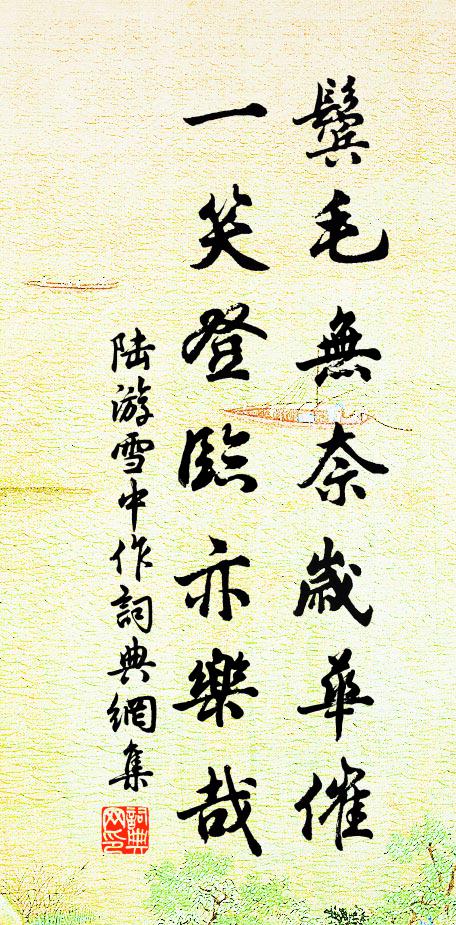 鬓毛無奈歲華催
一笑登臨亦樂哉
陆游雪中作詞典網集
詞典网印